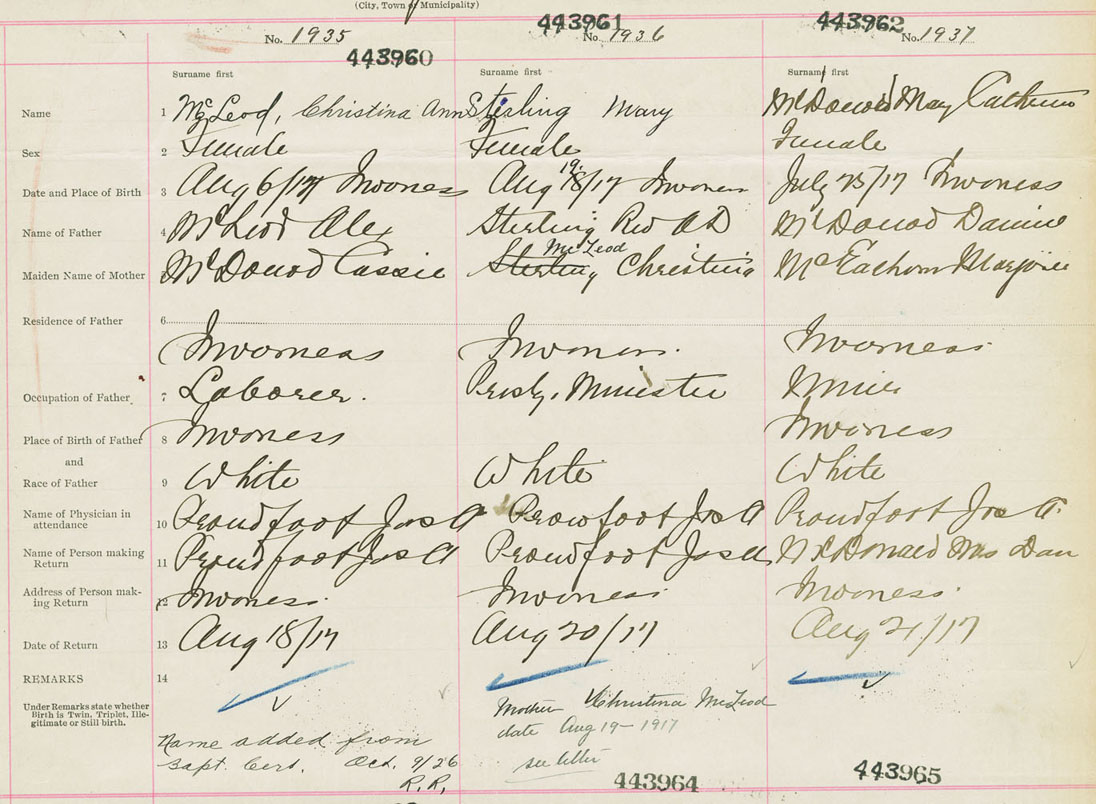 (City, Town of Municipality)
443961 443962
No. 1935 No. 1936 No. 1937
443960
Surname first Surname first Surname first
Name 1 McLeod, Christina Ann Sterling Mary McDonald Mary Catherine
Sex 2 Female Female Female
Date and Place of Birth 3 Aug 6/17 Inverness Aug 19/17 Inverness July 23/17 Inverness
Name of Father 4 McLeod Alex Sterling Rev A D McDonald Dannie
McLeod
Maiden Name of Mother McDonald Cassie Sterling Christina McEachern Marjorie
Residence of Father 6
Inverness Inverness. Inverness.
Occupation of Father 7 Laborer. Presby. Minister Miner
Place of Birth of Father 8 Inverness Inverness
and
Race of Father 9 White White White
Name of Physician in
attendance 10 Proudfoot Jos A Proudfoot Jos A Proudfoot Jos A.
Name of Person making
Return 11 Proudfoot Jos A Proudfoot Jos A McDonald Mrs Dan
Address of Person mak-
ing Return 12 Inverness. Inverness. Inverness.
Date of Return 13 Aug 18/17 Aug 20/17 Aug 21/17
REMARKS 14
Under Remarks state whether
Birth is Twin, Triplet, Ille-
gitimate or Still birth.
Mother Christina McLeod
date Aug 19-1917
see letter
Name added from
Bapt. Cert. Oct. 9/26
R.R.
443964 443965